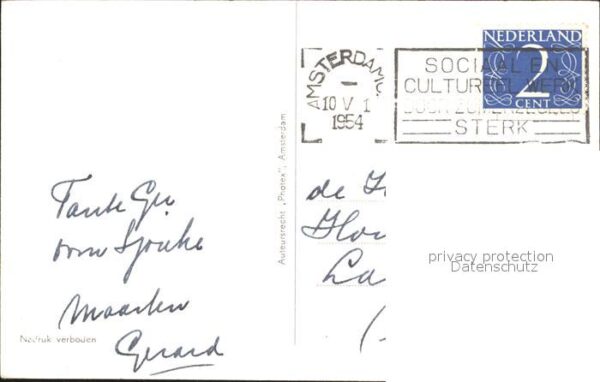 NEDERLAND
2
CENT
AMSTERDAM
10 V 1
1954
SOCIAAL EN
CULTUREEL WERK
DOOR ZOMERZEGELS
STERK
Tante
oom Sjouke
Maarten
Gerard
de
La
Nadruk verboden
Auteursrecht „Photex”, Amsterdam
privacy protection
Datenschutz